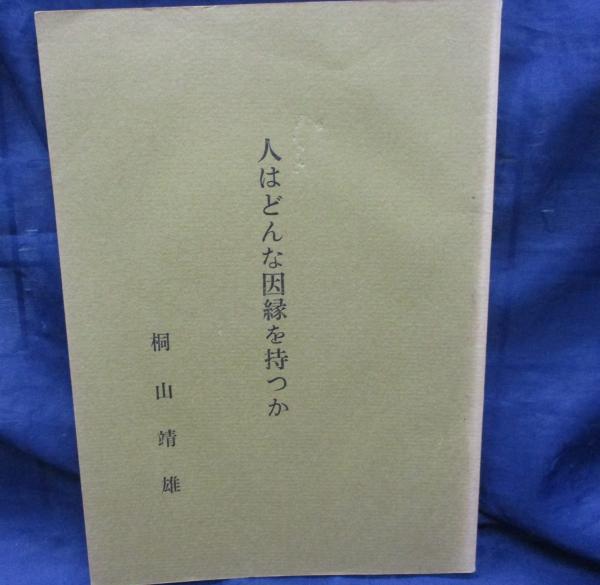 人はどんな因縁を持つか
桐山靖雄